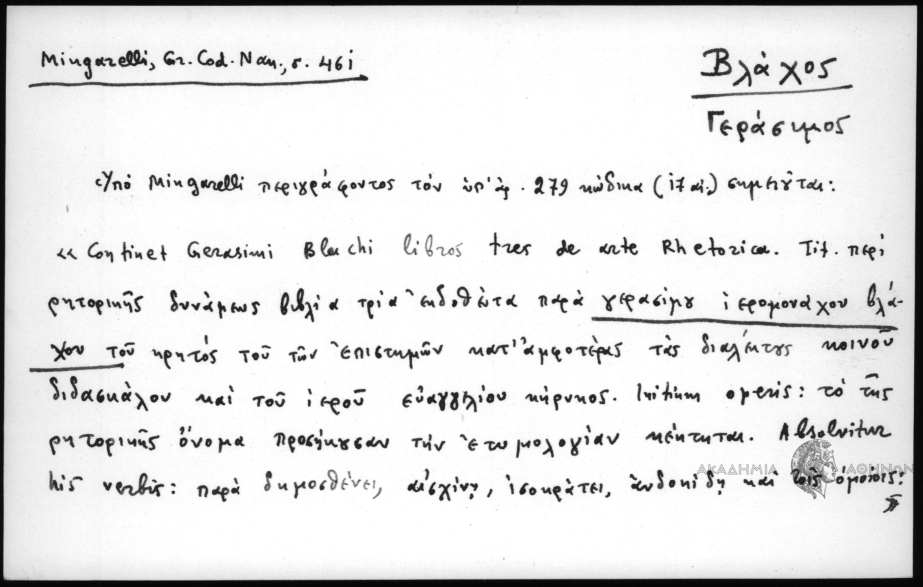 Mingarelli, Gr. Cod. Nan., σ. 461
Βλάχος
Γεράσιμος
Ὑπό Mingarelli περιγράφοντος τόν ὑπ' ἀρ. 279 κώδικα (17 αἰ.) σημειοῦται:
« Continet Gerasimi Blachi libros tres de arte Rhetorica. Tit. περί
ρητορικῆς δυνάμεως βιβλία τρία ἐκδοθέντα παρά γερασίμου ἱερομονάχου βλά-
χου τοῦ κρητός τοῦ τῶν ἐπιστημῶν κατ' ἀμφοτέρας τάς διαλέκτους κοινοῦ
διδασκάλου καί τοῦ ἱεροῦ εὐαγγελίου κήρυκος. Initium operis: τό τῆς
ρητορικῆς ὄνομα προσήκουσαν τήν ἐτυμολογίαν κέκτηται. Absolvitur
his verbis: παρά δημοσθένει, αἰσχίνῃ, ἰσοκράτει, ἀνδοκίδῃ καί τοῖς ὁμοίοις. »
ΑΚΑΔΗΜΙΑ ΑΘΗΝΩΝ